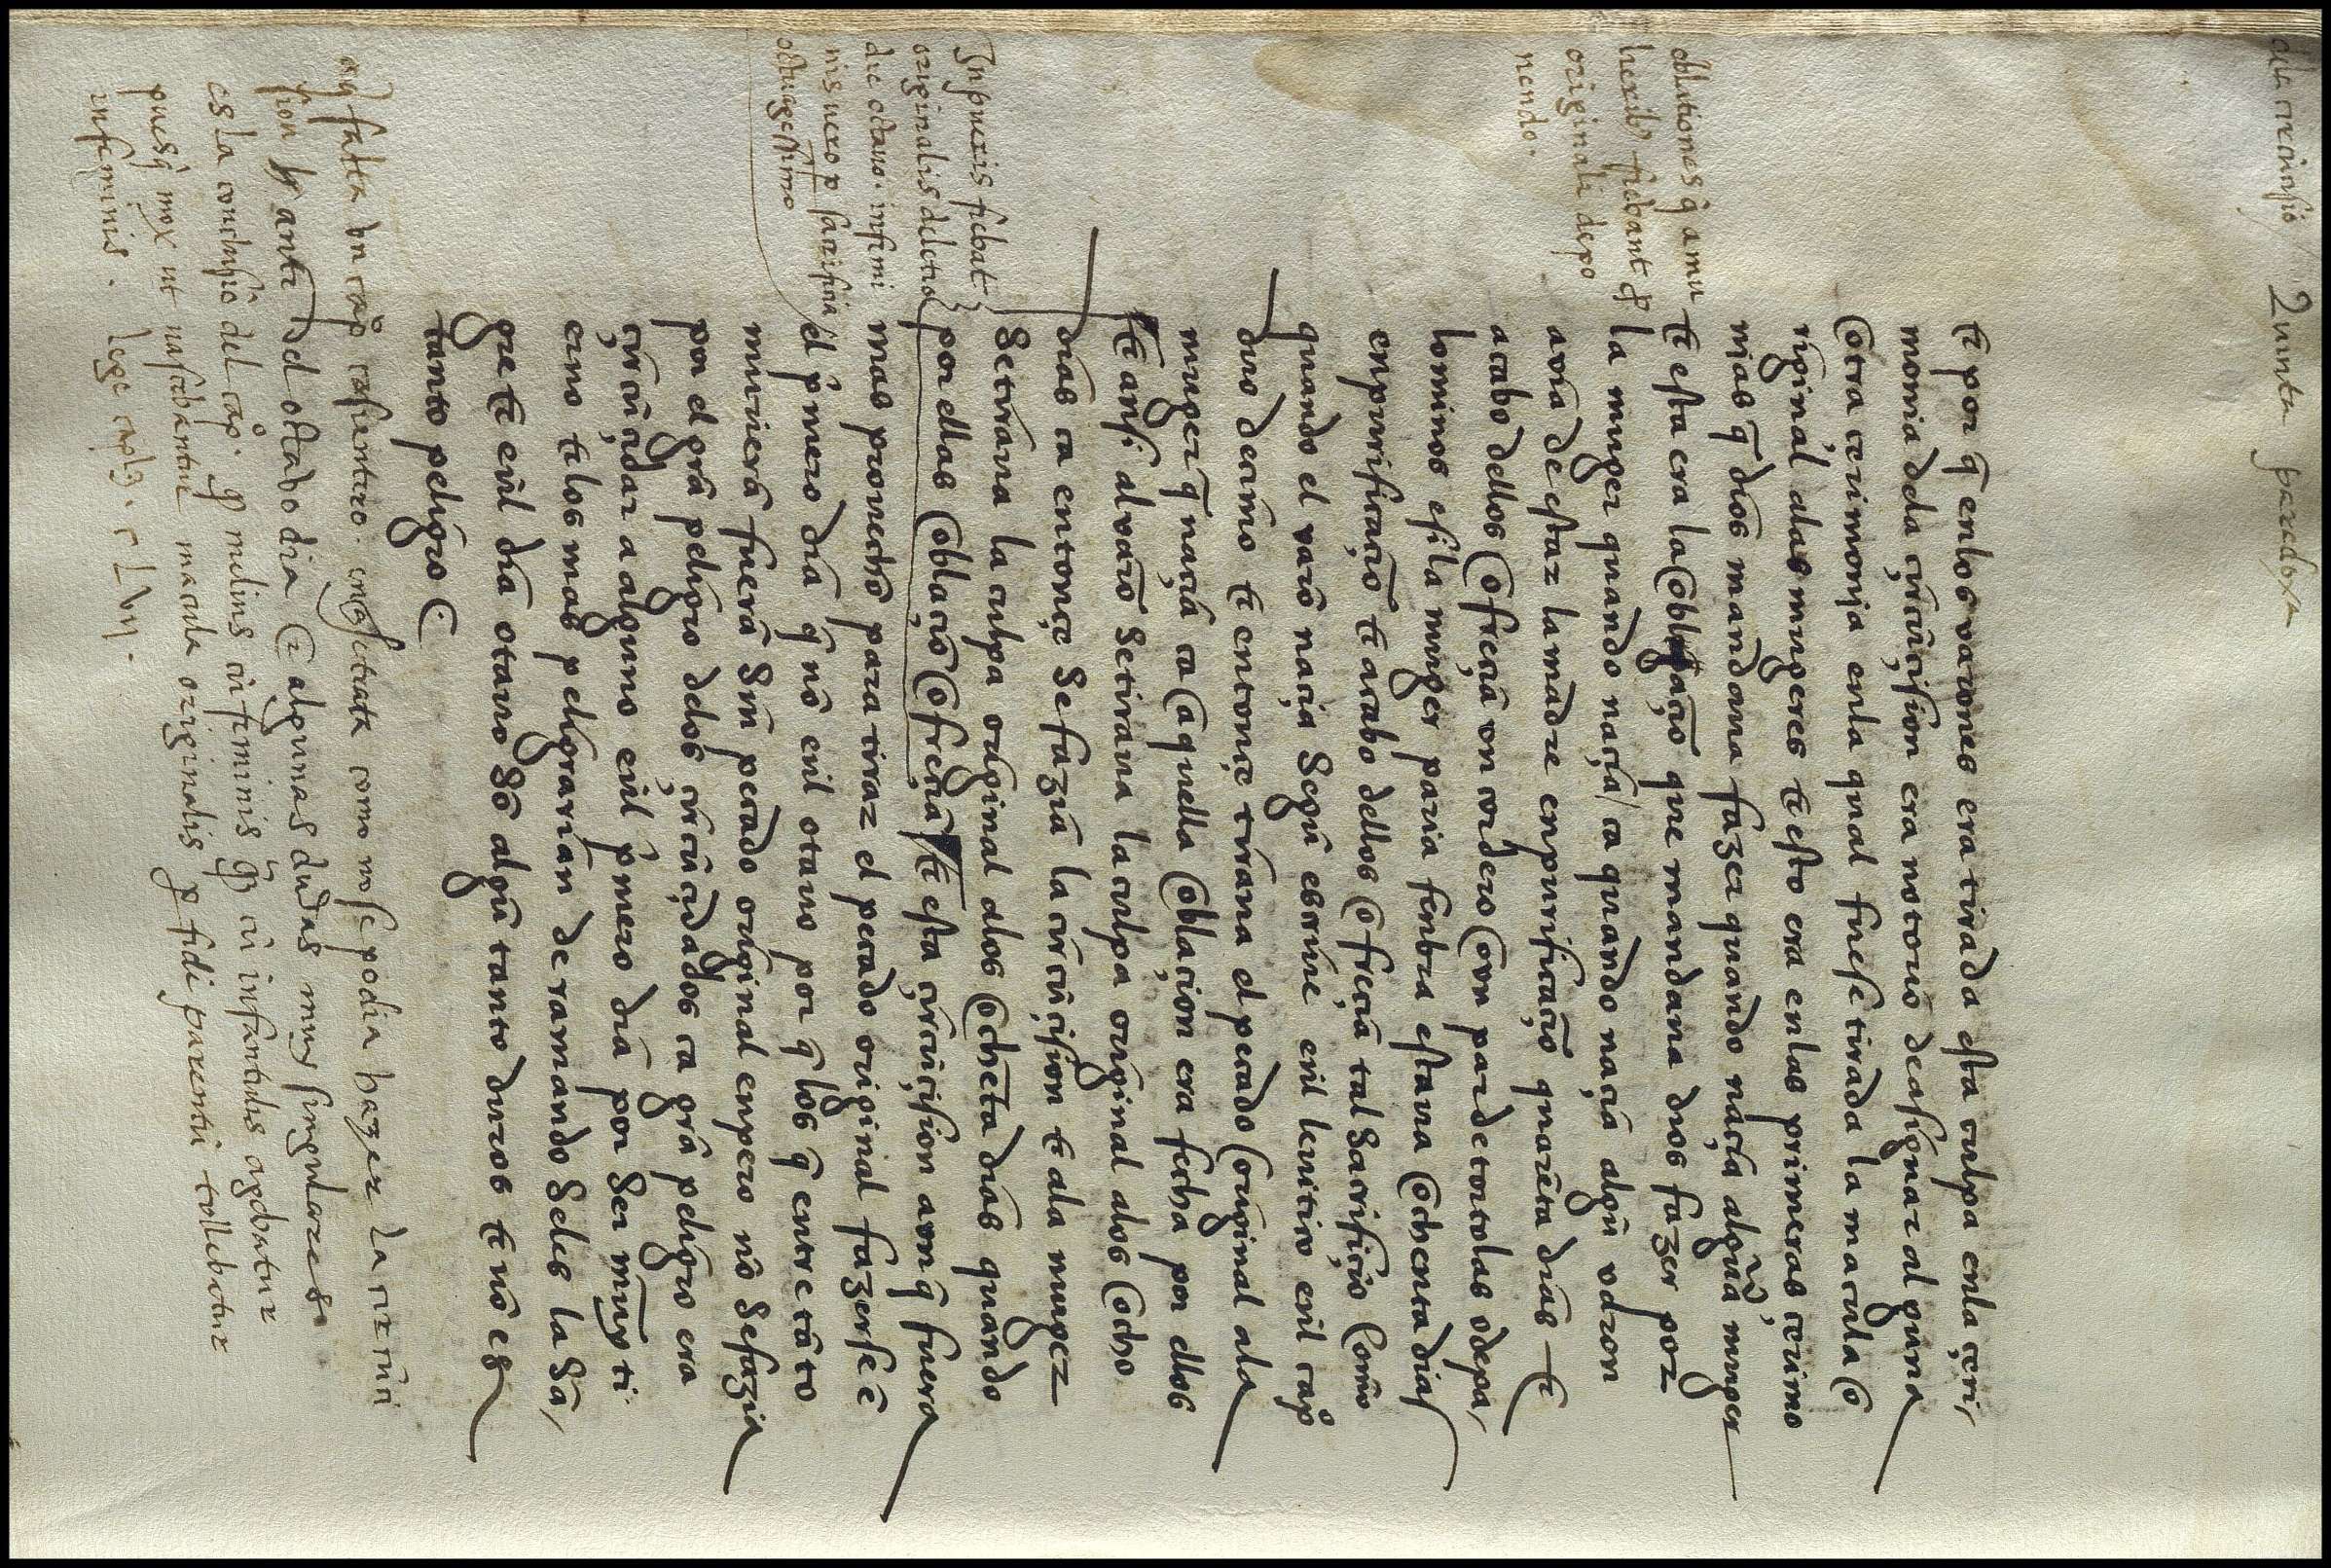 Quinta paradoxa
⁊ por q̃ enlos varones era tirada esta culpa enla çeri,
monia dela çircũçision era notorio de asignar alguna
otra cerimonja enla qual fuese tirada la macula o
riginal alas mugeres ⁊ esto era enlas primeras cerimo
nias q̃ dios mandaua fazer quando naçia algũa muger
⁊ esta era la oblaçiõ que mandaua dios fazer por
la muger quando naçia / ca quando naçia algũ varon
avia de estar la madre enpurificaçiõ quarẽta dias ⁊
acabo dellos ofreçia vn cordero o vn par de tortolas o de pa,
lominos e si la muger paria fenbra estaua ochenta dias
enpurificaçiõ ⁊ acabo dellos ofreçia tal sacrifiçio como
quando el varõ naçia segũ escriue enl leuitico enl capº
duo decimo ⁊ entonçe tiraua el pecado original ala
muger q̃ naçia ca aquella oblaçion era fecha por ellos
⁊ ansi al varõ se tiraua la culpa original alos ocho
dias ca entonçe se fazia la circũçision ⁊ ala muger
se tiraua la culpa original alos ochẽta dias quando
por ellas oblaçiõ ofreçia ⁊ esta çircũçision avn q̃ fuera
mas prouecho para tirar el pecado original fazerse ẽ
el p̃mero dia q̃ nõ enl otauo por q̃ los q̃ entre tãto
murierã fuerã sin pecado original enpero nõ se fazia
por el grã peligro delos çircũçidados ca grã peligro era
çircũçidar a alguno enl p̃mero dia por ser muy ti
erno ⁊ los mas peligrarian derramando seles la sã,
gre ⁊ enl dia otauo sõ algũ tanto duros ⁊ nõ es
tanto peligro
oblationes q̃ a mu
lierib; fiebant ꝓ
originali depo
nendo.
In pueris fiebat
originalis deletio
die octauo. in femi
nis uero ꝑ sacrificia
octuagessimo
aq̃ falta vn capº como no se podia hazer la circũci
sion ante del octabo dia ⁊ algunas dudas muy singulares
es la conclusiõ del capº. q̃ melius cũ feminis q̃ȝ cũ infantulis agebatur
puesq̃ mox ut nascebantur macula originalis ꝑ fidẽ parentũ tollebatur
in feminis. lege